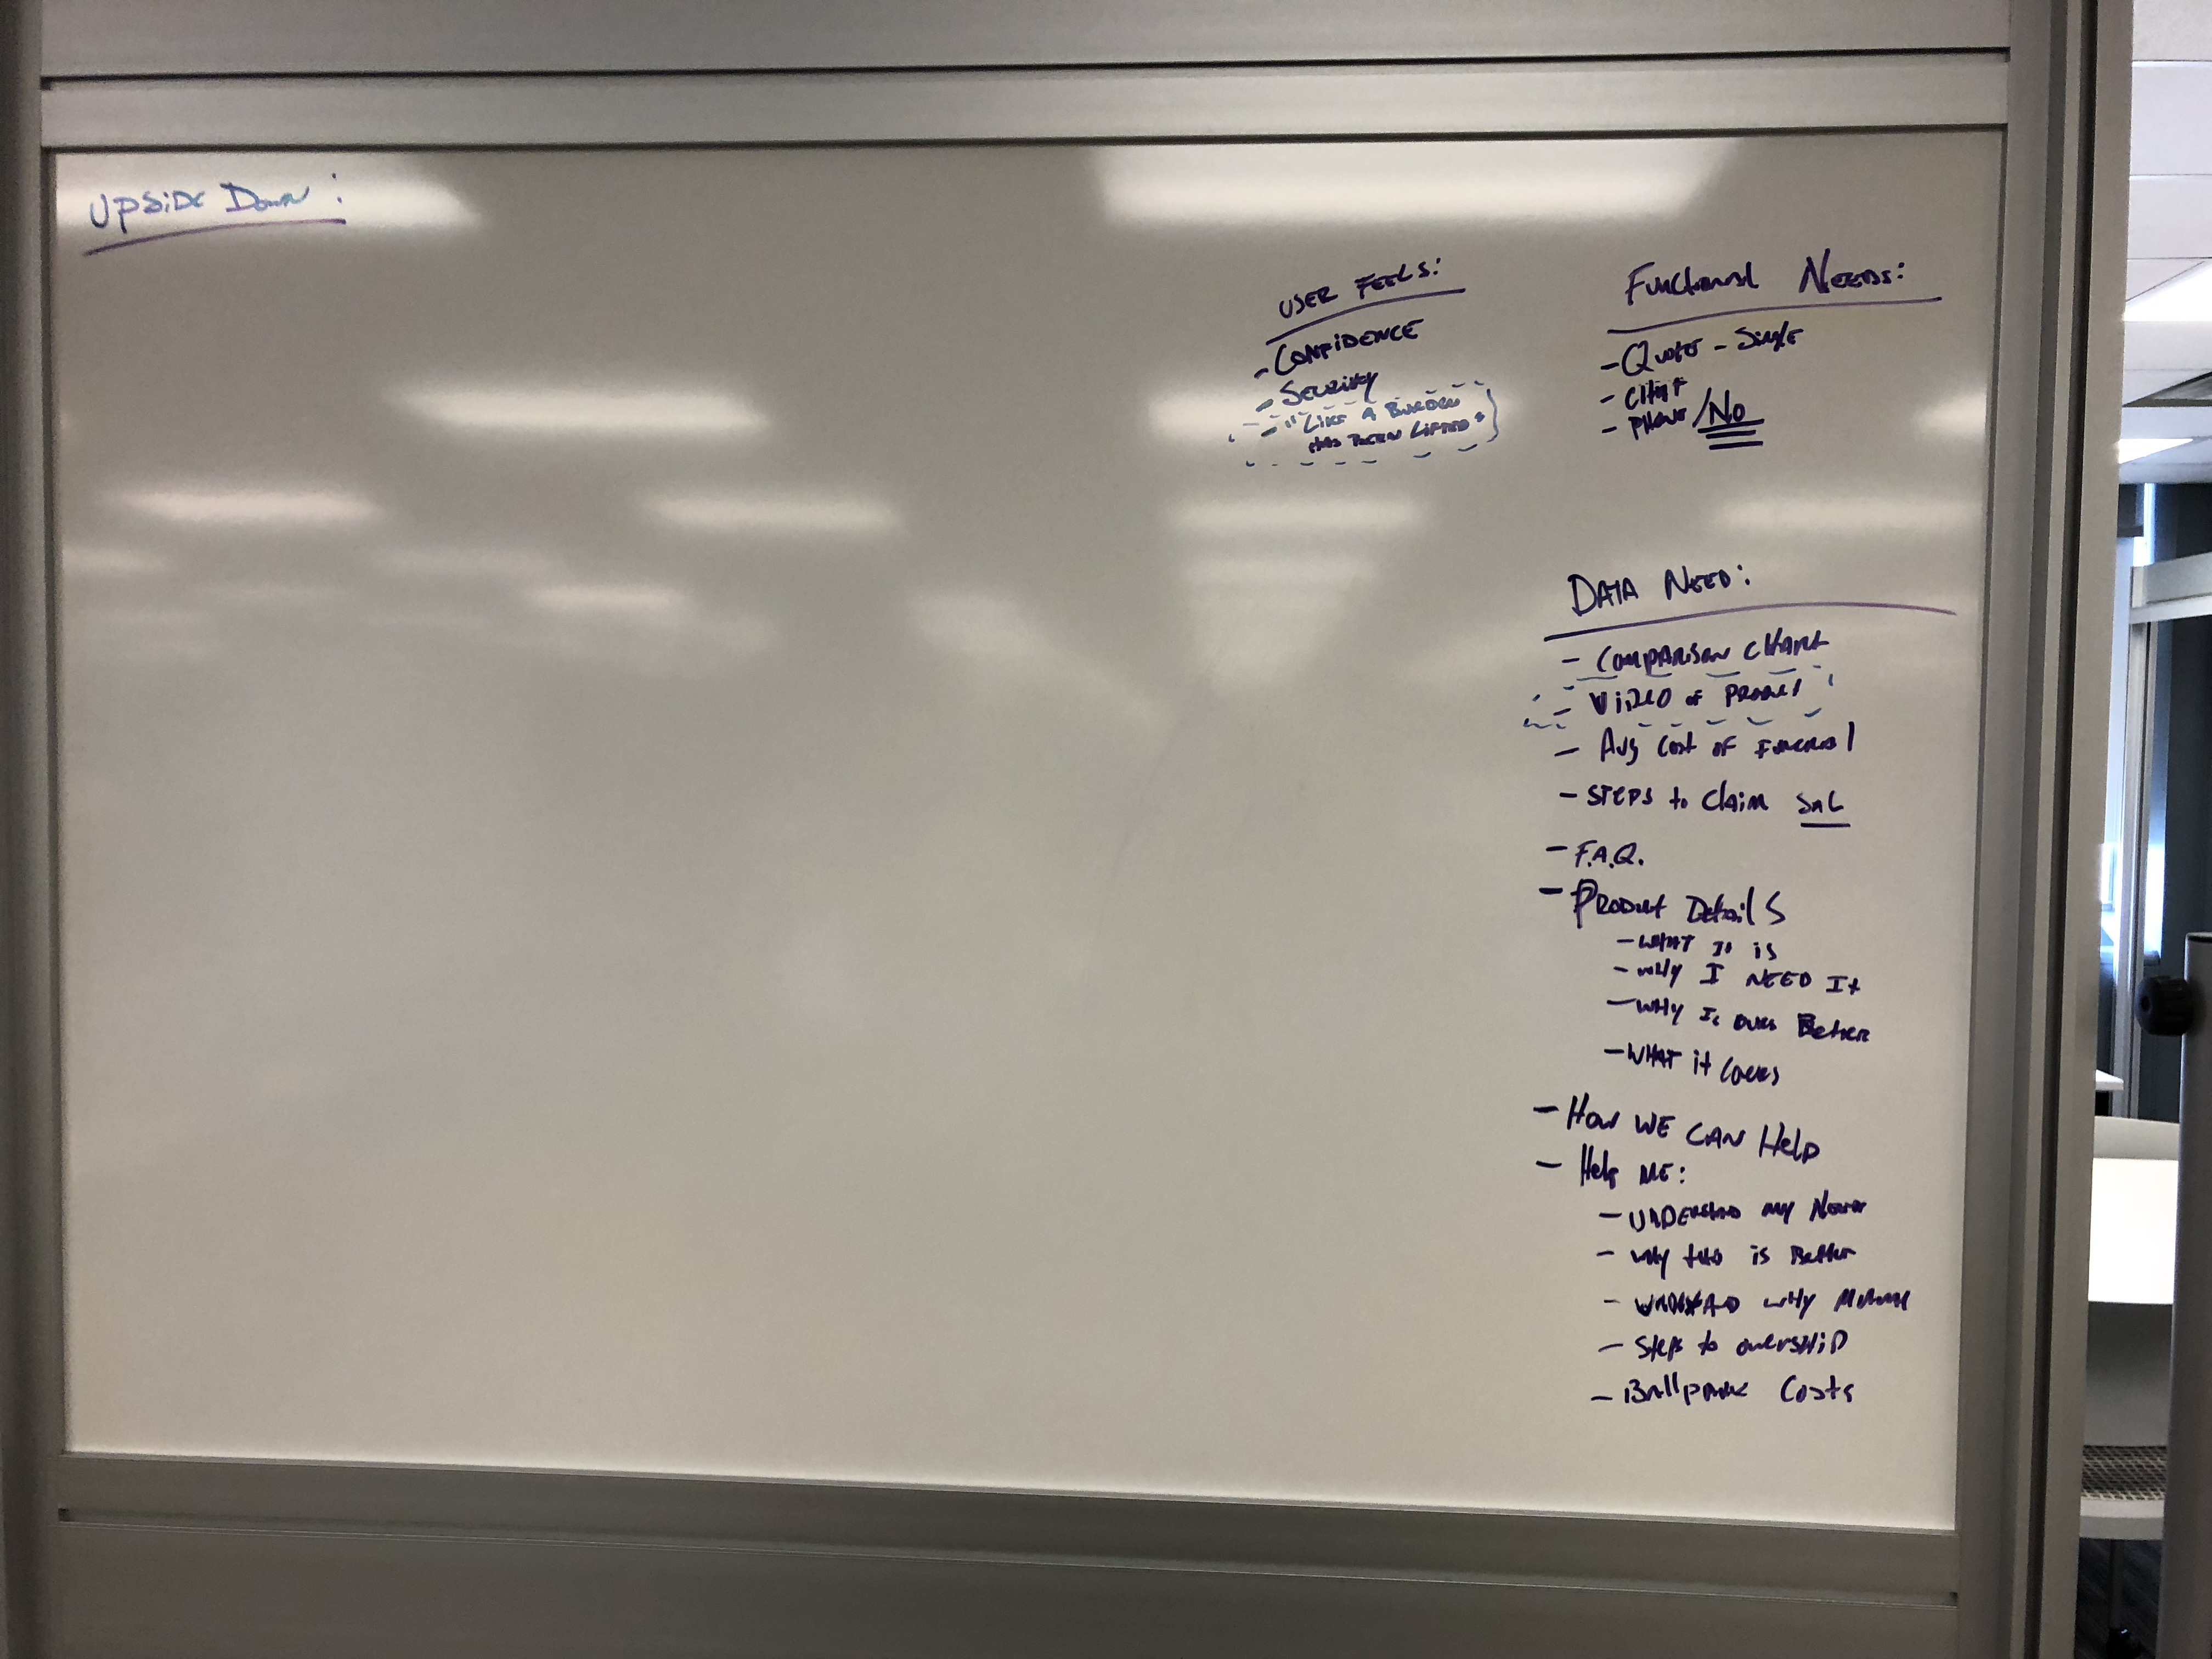 UPSiDE DOWN:
USER FEELS:
- CONFIDENCE
- SECURITY
- "LIKE A BURDEN
HAS BEEN LIFTED"
Functional NEEDS:
- Quotes - Single
- CHAT
- PHONE /No
DATA NEED:
- COMPARISON CHART
- ViDEO of PRODUCT
- Avg Cost of Funeral
- STEPS to Claim
- F.A.Q.
- PRODUCT Details
- WHAT It is
- WHY I NEED It
- WHY Is OURS Better
- WHAT it Covers
- How WE CAN Help
- Help ME:
- UNDERSTAND my Needs
- why this is Better
- UNDERSTAND WHY
- Steps to ownership
- Ballpark Costs